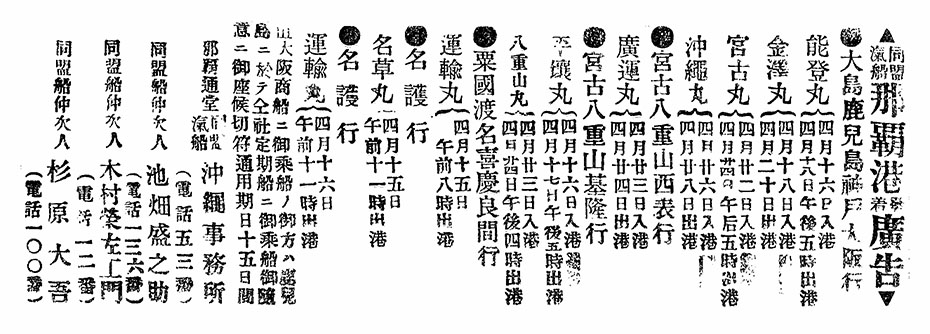 ▲同盟汽船那覇港發着廣告▼
●大島鹿兒島神戸大阪行
能登丸 四月十六日入港
四月十八日午後五時出港
金澤丸 四月十八日入港
四月二十日出港
宮古丸 日入港
四月廿四日午后五時出港
沖繩丸 四月廿六日入港
四月廿八日出港
●宮古八重山西表行
廣運丸 四月廿三日入港
四月廿四日出港
●宮古八重山基隆行
平壤丸 四月十六日入港
四月十七日午後五時出港
八重山丸 日入港
四月廿四日午後四時出港
●粟國渡名喜慶良間行
運輸丸 四月十五日
午前八時出港
●名護行
名草丸 四月十五日
午前十一時出港
●名護行
運輸丸 四月十六日
午前十一時出港
大阪商船ニ御乘船ノ御方ハ鹿兒
島ニ於テ仝社定期船ニ御乘船御隨
意ニ御座候切符通用期日十五日間
那覇通堂 同盟汽船 沖繩事務所
(電話五三番)
同盟船仲次人 池畑盛之助
(電話一三六番)
同盟船仲次人 木村榮左エ門
(電話一二番)
同盟船仲次人 杉原大吾
(電話一〇〇番)